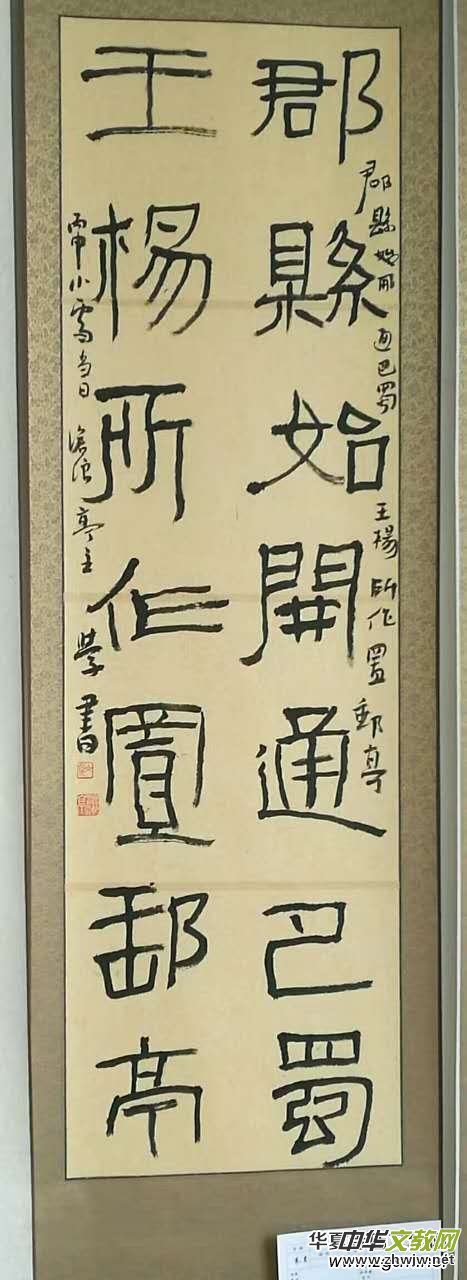 郡縣始開通巴蜀
郡縣始開通巴蜀 王楊所作置郵亭
王楊所作置郵亭
丙申小雪當日 滄浪亭主 學書
华夏中华文教网
www.ghwiw.net